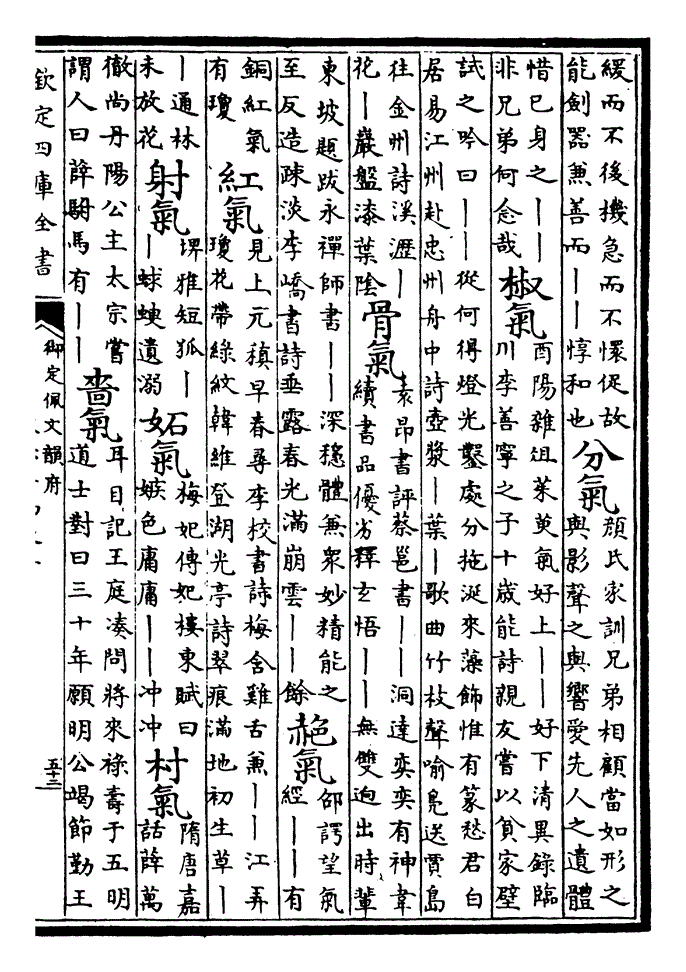 緩而不後機急而不懷促故
能劍器兼善而——惇和也
分氣
顔氏家訓兄弟相顧當如形之
與影聲之與響愛先人之遺體
惜已身之———
非兄弟何念哉
椒氣
酉陽雜俎茱萸氣好上——好下清異錄臨
川李善寧之子十歳能詩親友嘗以貧家壁
試之吟曰——從何得燈光鑿處分拖涎來藻飾惟有篆愁君白
居易江州赴忠州舟中詩壺漿—葉—歌曲竹枝聲喻鳧送賈島
往金州詩溪瀝—
花—巖盤漆葉陰
骨氣
袁昂書評蔡邕書——洞達奕奕有神韋
續書品優劣釋玄悟——無雙迥出時輩
東坡題跋永禪師書——深穩體兼衆妙精能之
至反造踈淡李嶠書詩垂露春光滿崩雲——餘
赩氣
邵諤望氣
經——有
銅紅氣
有瓊
紅氣
見上元稹早春尋李校書詩梅含雞舌兼——江弄
瓊花帶綠紋韓維登湖光亭詩翠痕滿地初生草—
—通林
未放花
射氣
埤雅短狐—
—蛷螋遺溺
妬氣
梅妃傳妃樓東賦曰
嫉色庸庸——冲冲
村氣
隋唐嘉
話薛萬
徹尚丹陽公主太宗嘗
謂人曰薛駙馬有——
嗇氣
耳目記王庭湊問將來祿壽于五明
道士對曰三十年願明公竭節勤王
欽定四庫全書
御定佩文韻府
五十三